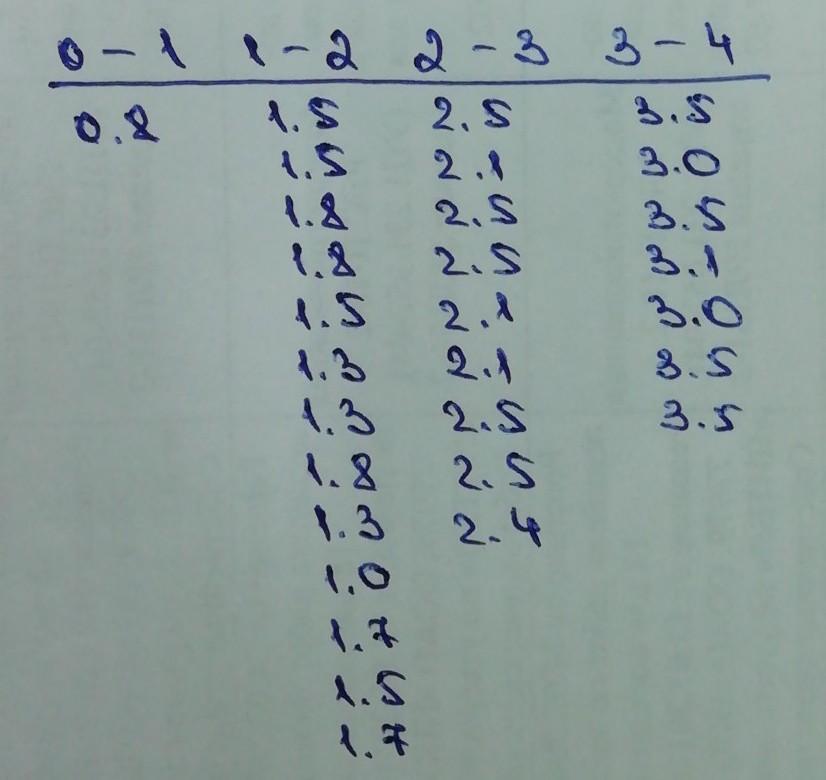 0 - 1 1 - 2 2 - 3 3 - 4
0.8 1.5 2.5 3.5
1.5 2.1 3.0
1.8 2.5 3.5
1.8 2.5 3.1
1.5 2.1 3.0
1.3 2.1 3.5
1.3 2.5 3.5
1.8 2.5
1.3 2.4
1.0
1.7
1.5
1.7